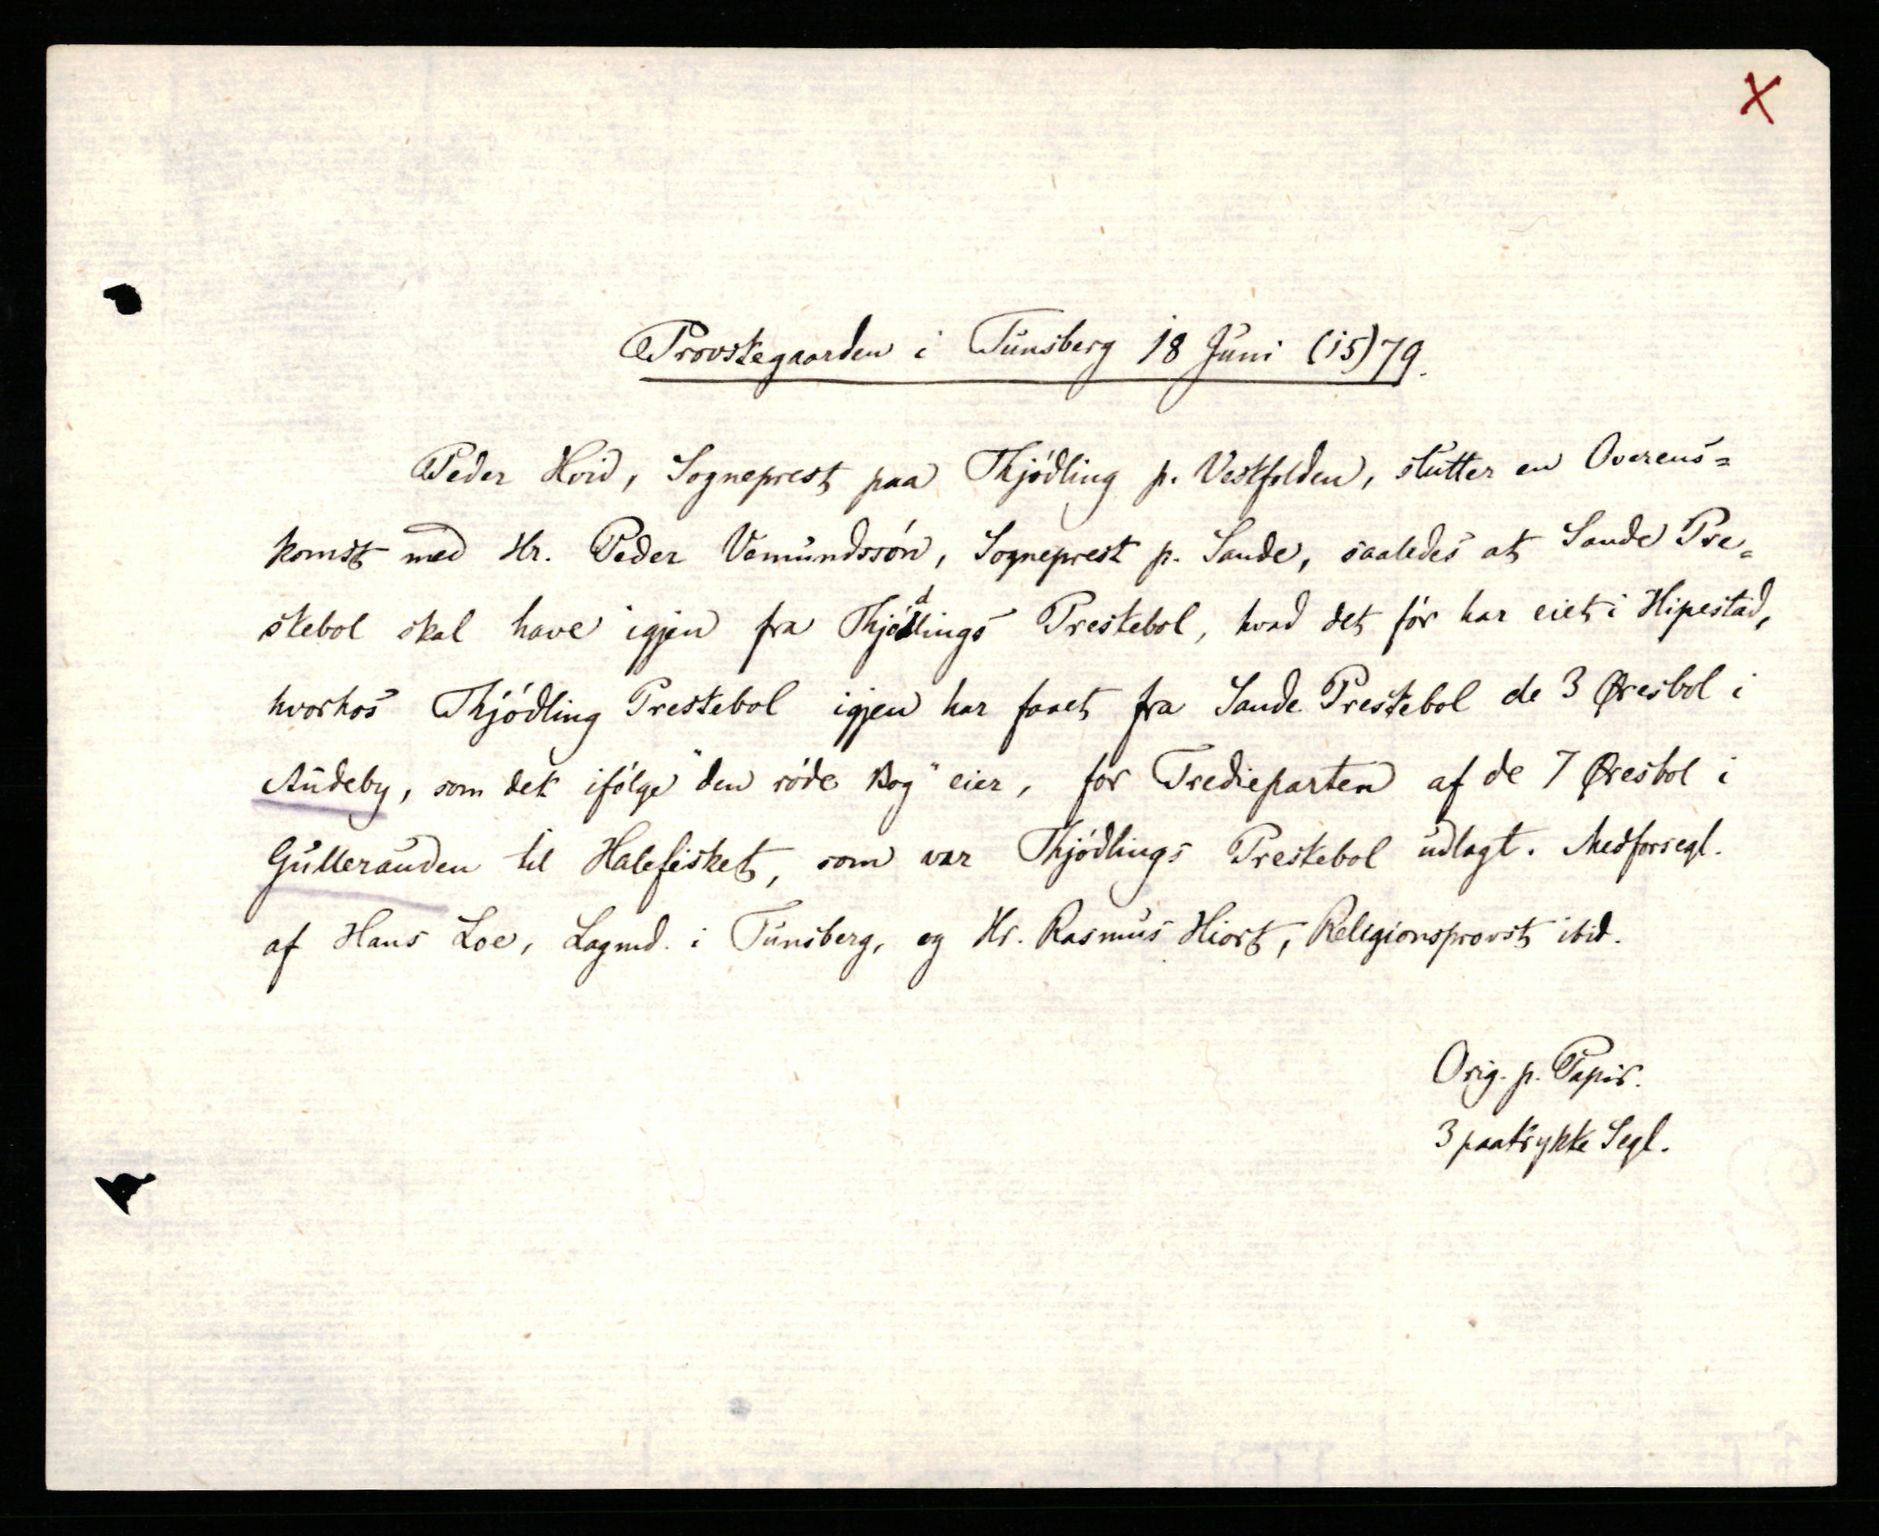 X
Provstegaarden i Tunsberg 18 Juni (15)79.
Peder Hvid, Sogneprest paa Thjódling p. Vestfolden, slutter en Overens=
komst med Hr. Peder Vemundssón, Sogneprest p. Sande, saaledes at Sande Pre=
stebol skal have igjen fra Thjódlings Prestebol, hvad det fór har eiet i Hipestad,
hvorhos Thjódling Prestebol igjen har faaet fra Sande Prestebol de 3 Øresbol i
Audeby, som det ifólge "den róde Bog" eier, for Trediеparten af de 7 Øresbol i
Gulleranden til Halefisket, som var Thjódlings Prestebol udlagt. Medforsegl.
af Hans Loe, Lagmd. i Tunsberg, og Hr. Rasmus Hiort, Religionsprovst ibid.
Orig. p. Papir.
3 paatrykte Segl.